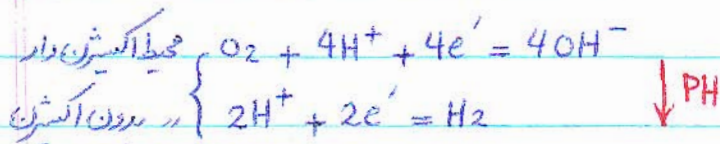 محیط اکسیژن دار { O₂ + 4H⁺ + 4e′ = 4OH⁻
〃 بدون اکسیژن { 2H⁺ + 2e′ = H₂
↓ PH